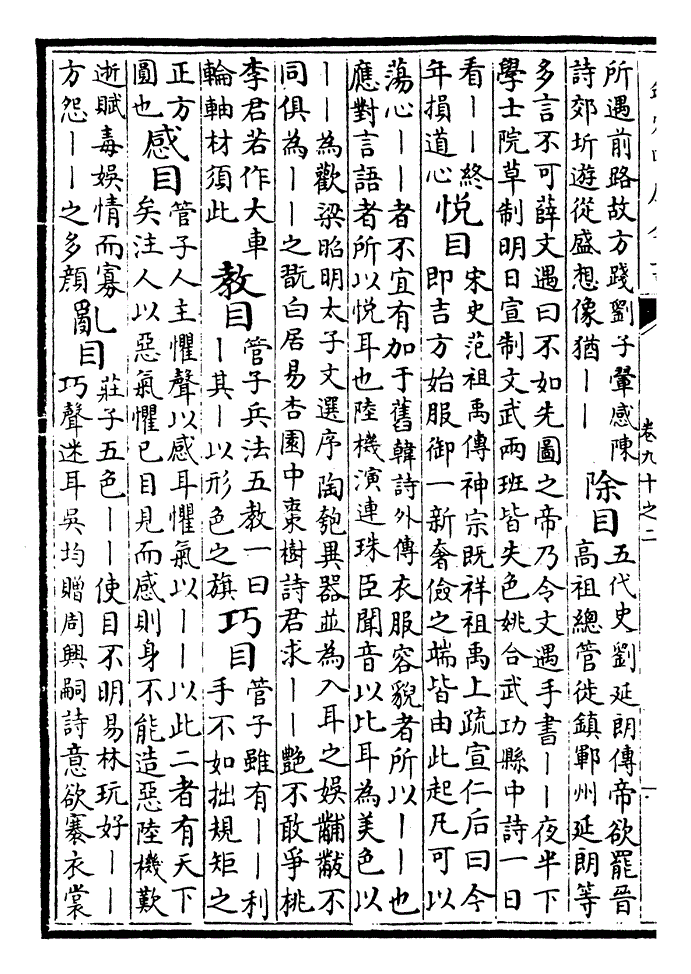 卷九十之二
所遇前路故方踐劉子翬感陳
詩郊圻遊從盛想像猶丨丨
除目
五代史劉延朗傳帝欲罷晉
高祖總管徙鎮鄆州延朗等
多言不可薛文遇曰不如先圖之帝乃令文遇手書丨丨夜半下
學士院草制明日宣制文武兩班皆失色姚合武功縣中詩一日
看丨丨終
年損道心
悦目
宋史范祖禹傳神宗既祥祖禹上疏宣仁后曰今
即吉方始服御一新奢儉之端皆由此起凡可以
蕩心丨丨者不宜有加于舊韓詩外傳衣服容貌者所以丨丨也
應對言語者所以悦耳也陸機演連珠臣聞音以比耳為美色以
丨丨為歡梁昭明太子文選序陶匏異器並為入耳之娛黼黻不
同俱為丨丨之翫白居易杏園中棗樹詩君求丨丨艷不敢爭桃
李君若作大車
輪軸材須此
教目
管子兵法五教一曰
丨其丨以形色之旗
巧目
管子雖有丨丨利
手不如拙規矩之
正方
圓也
感目
管子人主懼聲以感耳懼氣以丨丨以此二者有天下
矣注人以惡氣懼已目見而感則身不能造惡陸機歎
逝賦毒娛情而寡
方怨丨丨之多顏
亂目
莊子五色丨丨使目不明易林玩好丨丨
巧聲迷耳吳均贈周興嗣詩意欲褰衣裳